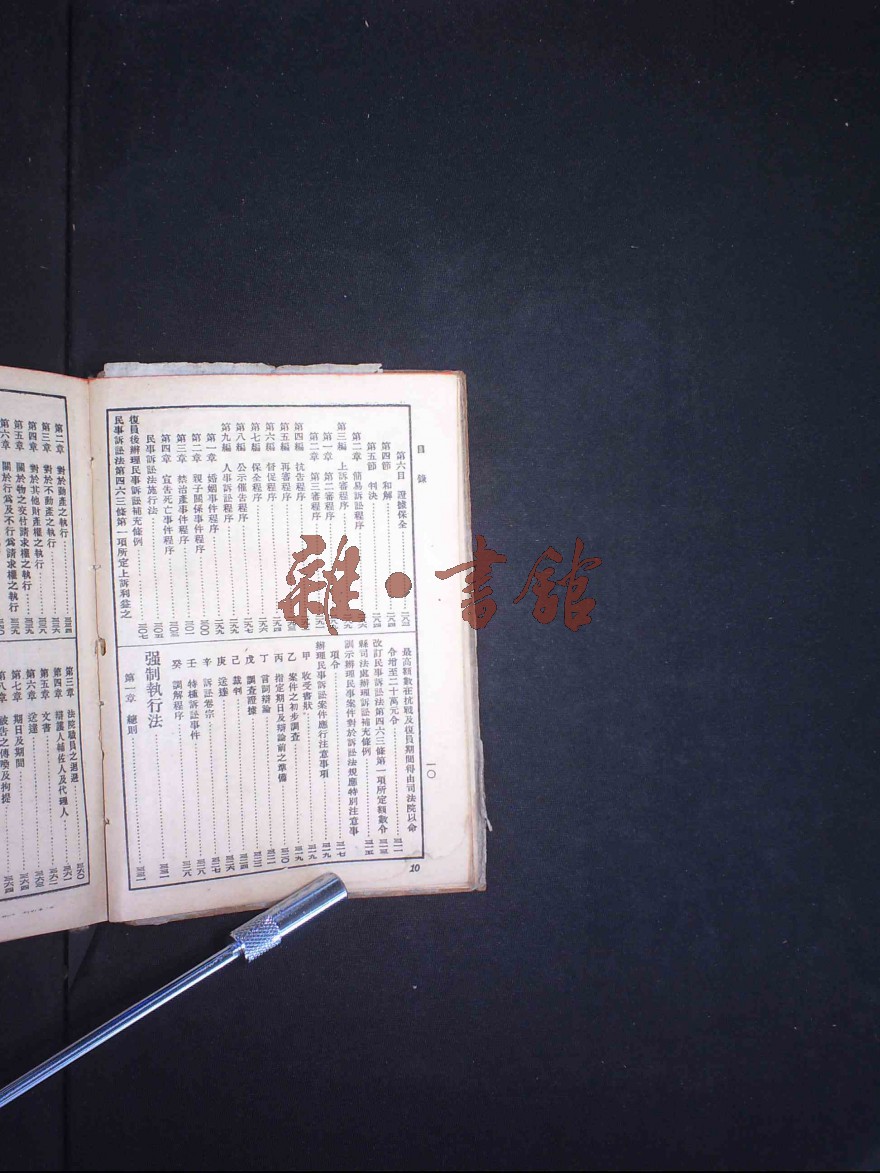 目錄
一〇
第六目 證據保全
第四節 和解
第五節 判決
第二章 簡易訴訟程序
第三編 上訴審程序
第一章 第二審程序
第二章 第三審程序
第四編 抗告程序
第五編 再審程序
第六編 督促程序
第七編 保全程序
第八編 公示催告程序
第九編 人事訴訟程序
第一章 婚姻事件程序
第二章 親子關係事件程序
第三章 禁治產事件程序
第四章 宣告死亡事件程序
民事訴訟法施行法
復員後辦理民事訴訟補充條例
民事訴訟法第四六三條第一項所定上訴利益之
最高額數在抗戰及復員期間得由司法院以命
令增至二十萬元令
改訂民事訴訟法第四六三條第一項所定額數令
縣司法處辦理訴訟補充條例
訓示辦理民事案件對於訴訟法規應特別注意事
項令
辦理民事訴訟案件應行注意事項
甲 收受書狀
乙 案件之初步調查
丙 指定期日及辯論前之準備
丁 言詞辯論
戊 調查證據
己 裁判
庚 送達
辛 訴訟卷宗
壬 特種訴訟事件
癸 調解程序
强制執行法
第一章 總則
10
第二章 對於動產之執行
第三章 對於不動產之執行
第四章 對於其他財產權之執行
第五章 關於物之交付請求權之執行
第六章 關於行爲及不行爲請求權之執行
第三章 法院職員之迴避
第四章 辯護人輔佐人及代理人
第五章 文書
第六章 送達
第七章 期日及期間
第八章 被告之傳喚及拘提
雜·書館